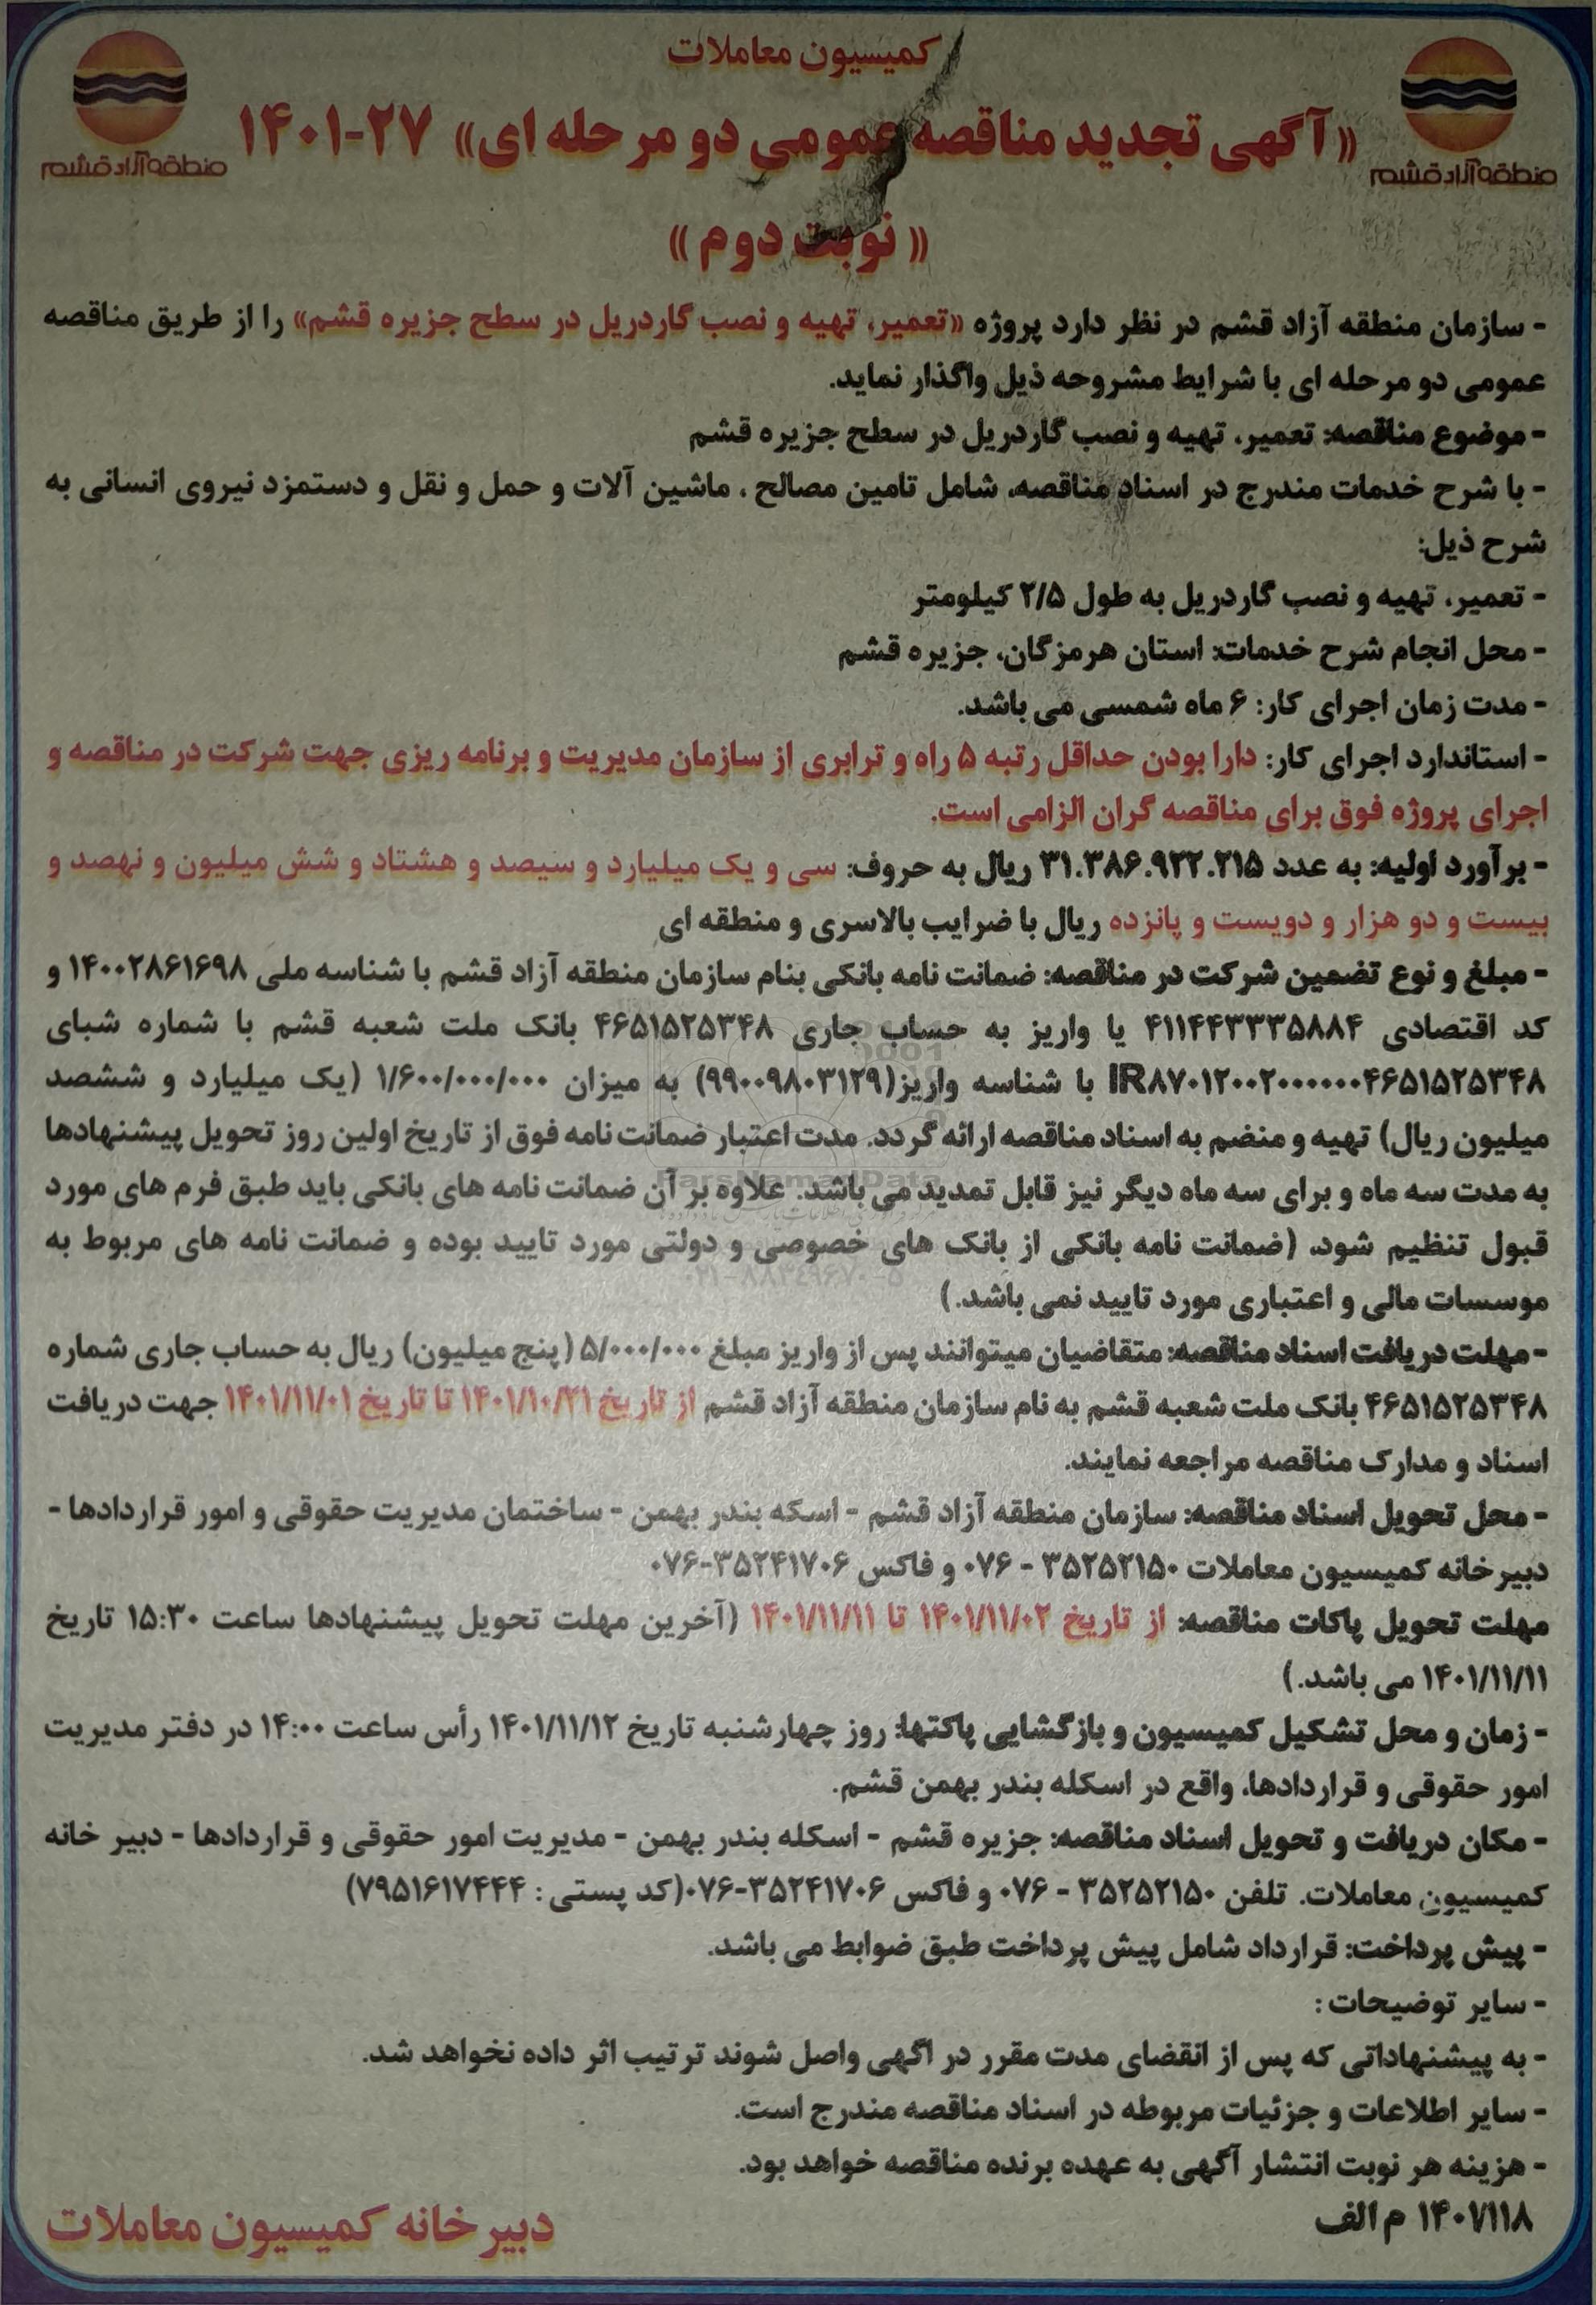 کمیسیون معاملات
« آگهی تجدید مناقصه عمومی دو مرحله ای» ۲۷-۱۴۰۱
منطقه آزاد قشم
منطقه آزاد قشم
« نوبت دوم »
- سازمان منطقه آزاد قشم در نظر دارد پروژه «تعمیر، تهیه و نصب گاردریل در سطح جزیره قشم» را از طریق مناقصه
عمومی دو مرحله ای با شرایط مشروحه ذیل واگذار نماید.
- موضوع مناقصه: تعمیر، تهیه و نصب گاردریل در سطح جزیره قشم
- با شرح خدمات مندرج در اسناد مناقصه، شامل تامین مصالح ، ماشین آلات و حمل و نقل و دستمزد نیروی انسانی به
شرح ذیل:
- تعمیر، تهیه و نصب گاردریل به طول ۲/۵ کیلومتر
- محل انجام شرح خدمات: استان هرمزگان، جزیره قشم
- مدت زمان اجرای کار: ۶ ماه شمسی می باشد.
- استاندارد اجرای کار: دارا بودن حداقل رتبه ۵ راه و ترابری از سازمان مدیریت و برنامه ریزی جهت شرکت در مناقصه و
اجرای پروژه فوق برای مناقصه گران الزامی است.
- برآورد اولیه: به عدد ۳۱.۳۸۶.۹۲۲.۲۱۵ ریال به حروف: سی و یک میلیارد و سیصد و هشتاد و شش میلیون و نهصد و
بیست و دو هزار و دویست و پانزده ریال با ضرایب بالاسری و منطقه ای
- مبلغ و نوع تضمین شرکت در مناقصه: ضمانت نامه بانکی بنام سازمان منطقه آزاد قشم با شناسه ملی ۱۴۰۰۲۸۶۱۶۹۸ و
کد اقتصادی ۴۱۱۴۴۳۳۳۵۸۸۴ یا واریز به حساب جاری ۴۶۵۱۵۲۵۳۴۸ بانک ملت شعبه قشم با شماره شبای
IR۸۷۰۱۲۰۰۲۰۰۰۰۰۰۴۶۵۱۵۲۵۳۴۸ با شناسه واریز(۹۹۰۰۹۸۰۳۱۲۹) به میزان ۱/۶۰۰/۰۰۰/۰۰۰ (یک میلیارد و ششصد
میلیون ریال) تهیه و منضم به اسناد مناقصه ارائه گردد. مدت اعتبار ضمانت نامه فوق از تاریخ اولین روز تحویل پیشنهادها
به مدت سه ماه و برای سه ماه دیگر نیز قابل تمدید می باشد. علاوه بر آن ضمانت نامه های بانکی باید طبق فرم های مورد
قبول تنظیم شود، (ضمانت نامه بانکی از بانک های خصوصی و دولتی مورد تایید بوده و ضمانت نامه های مربوط به
۰۲۱-۸۸۳۴۹۶۷۰-۵
موسسات مالی و اعتباری مورد تایید نمی باشد.)
- مهلت دریافت اسناد مناقصه: متقاضیان میتوانند پس از واریز مبلغ ۵/۰۰۰/۰۰۰ (پنج میلیون) ریال به حساب جاری شماره
۴۶۵۱۵۲۵۳۴۸ بانک ملت شعبه قشم به نام سازمان منطقه آزاد قشم از تاریخ ۱۴۰۱/۱۰/۲۱ تا تاریخ ۱۴۰۱/۱۱/۰۱ جهت دریافت
اسناد و مدارک مناقصه مراجعه نمایند.
- محل تحویل اسناد مناقصه: سازمان منطقه آزاد قشم - اسکه بندر بهمن - ساختمان مدیریت حقوقی و امور قراردادها -
دبیرخانه کمیسیون معاملات ۳۵۲۵۲۱۵۰ - ۰۷۶ و فاکس ۳۵۲۴۱۷۰۶-۰۷۶
مهلت تحویل پاکات مناقصه: از تاریخ ۱۴۰۱/۱۱/۰۲ تا ۱۴۰۱/۱۱/۱۱ (آخرین مهلت تحویل پیشنهادها ساعت ۱۵:۳۰ تاریخ
۱۴۰۱/۱۱/۱۱ می باشد.)
- زمان و محل تشکیل کمیسیون و بازگشایی پاکتها: روز چهارشنبه تاریخ ۱۴۰۱/۱۱/۱۲ رأس ساعت ۱۴:۰۰ در دفتر مدیریت
امور حقوقی و قراردادها، واقع در اسکله بندر بهمن قشم.
- مکان دریافت و تحویل اسناد مناقصه: جزیره قشم - اسکله بندر بهمن - مدیریت امور حقوقی و قراردادها - دبیر خانه
کمیسیون معاملات. تلفن ۳۵۲۵۲۱۵۰ - ۰۷۶ و فاکس ۳۵۲۴۱۷۰۶-۰۷۶(کد پستی : ۷۹۵۱۶۱۷۴۴۴)
- پیش پرداخت: قرارداد شامل پیش پرداخت طبق ضوابط می باشد.
- سایر توضیحات :
- به پیشنهاداتی که پس از انقضای مدت مقرر در آگهی واصل شوند ترتیب اثر داده نخواهد شد.
- سایر اطلاعات و جزئیات مربوطه در اسناد مناقصه مندرج است.
- هزینه هر نوبت انتشار آگهی به عهده برنده مناقصه خواهد بود.
۱۴۰۱/۱۱۸ م الف
دبیرخانه کمیسیون معاملات